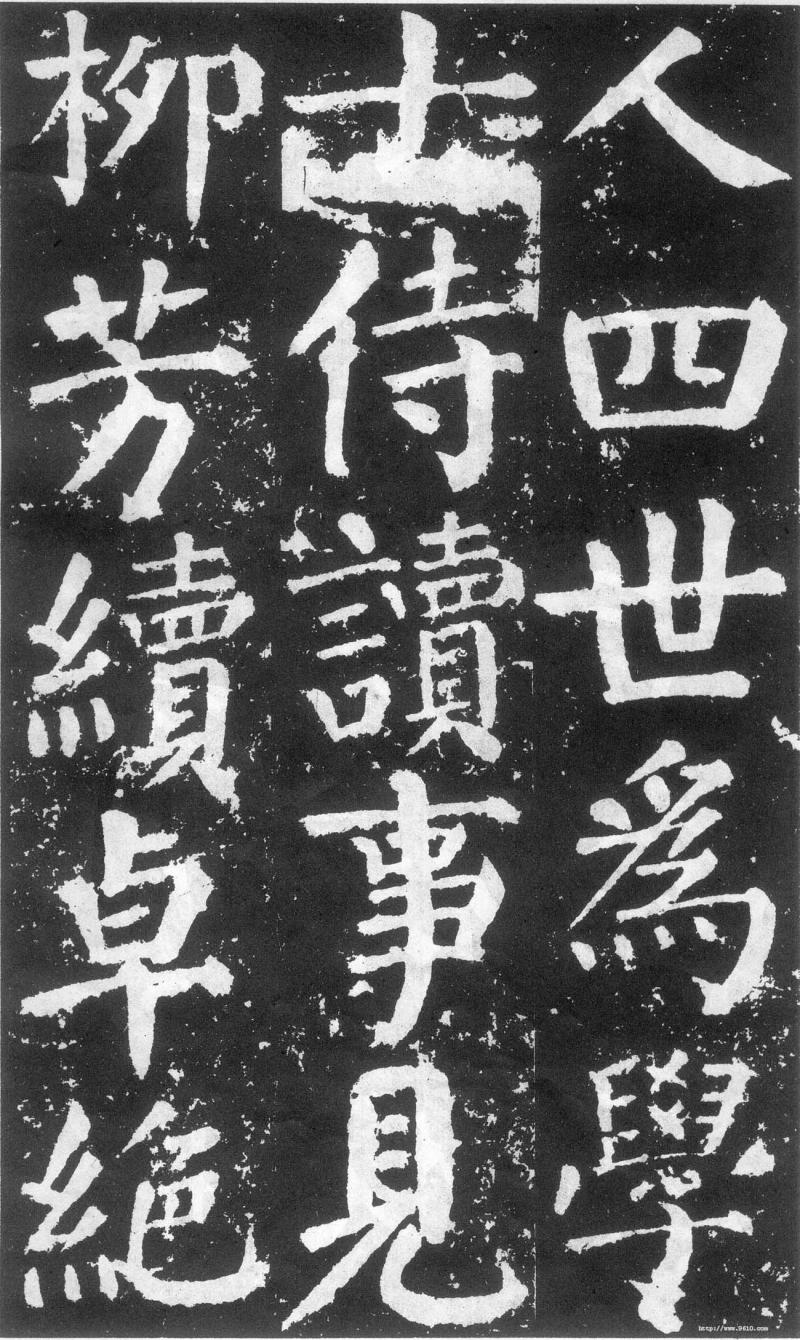 人四世為學
士侍讀事見
柳芳續卓絕
http://www.9610.com